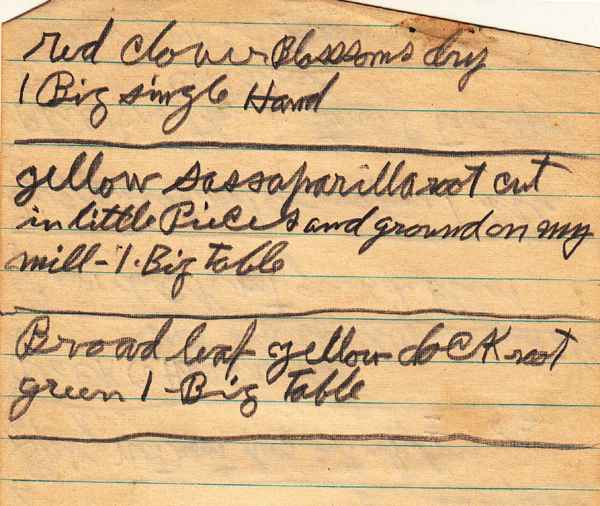 red clover Blosssoms dry
1 Big single Hand
yellow sassaparilla root cut
in little Pieces and ground on my
mill - 1. Big Table
Broad leaf yellow docK root
green 1 - Big Table